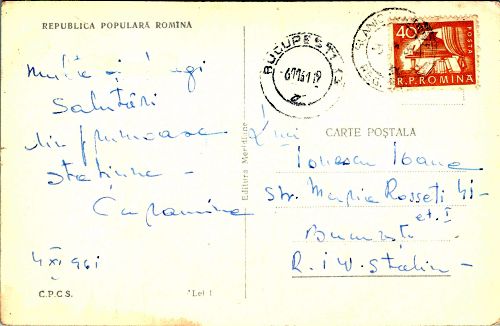 REPUBLICA POPULARĂ ROMÎNĂ
Multe și dragi
salutări
din frumoasa
stațiune –
4 XI 961
C.P.C.S.
Lei 1
Editura Meridiane
BUCUREȘTI
6 11 61
SLANIC
40
POSTA
R.P.ROMINA
CARTE POȘTALA
Ionescu Ioana
Str. Maria Rosseti
et. I
București
R. I V. Stalin –